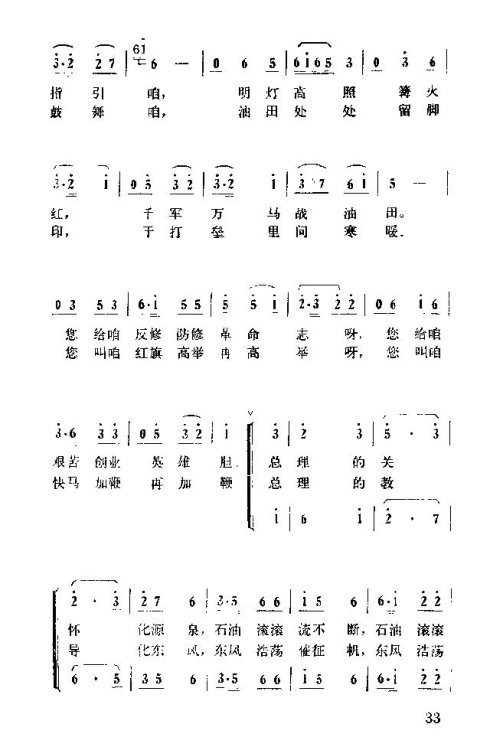 3·2 27 61 6 — | 0 6 5 | 6165 3 | 0 3 6 |
指引 咱, 明灯高 照 篝火
鼓舞 咱, 油田处 处 留脚
3·2 1 | 05 32 | 3·2 1 | 3 7 61 | 5 — |
红, 千军 万 马战 油 田。
印, 干打 垒 里问 寒 暖。
03 53 | 6·1 55 | 5 51 | 2·3 22 | 06 16 |
您 给咱 反修 防修 革 命 志 呀, 您 给咱
您 叫咱 红旗 高举 再 高 举 呀, 您 叫咱
3·6 33 | 05 32 | 1 | 3 2 | 1 3 | 5 · 3 |
艰苦 创业 英雄 胆。 总 理 的 关
快马 加鞭 再加 鞭 总 理 的 教
1 6 | 6 1 | 2 · 7 |
2 · 3 | 27 6 | 3·5 66 | 15 6 | 6·1 22 |
怀 化源 泉, 石油 滚滚 流不 断, 石油 滚滚
导 化东 风, 东风 浩荡 催征 帆, 东风 浩荡
6 · 3 | 35 6 | 3·5 66 | 15 6 | 6·1 22 |
33